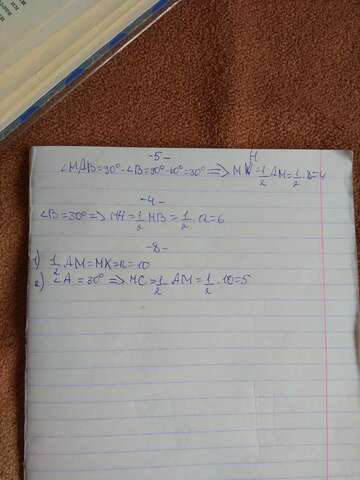 -5-
∠MAB=90°-∠B=90°-60°=30° => MH=1/2 AM=1/2·8=4
-4-
∠B=30° => MH=1/2 MB=1/2·12=6
-8-
1) 1/2 AM=MK=n=10
2) ∠A=30° => MC=1/2 AM=1/2·10=5